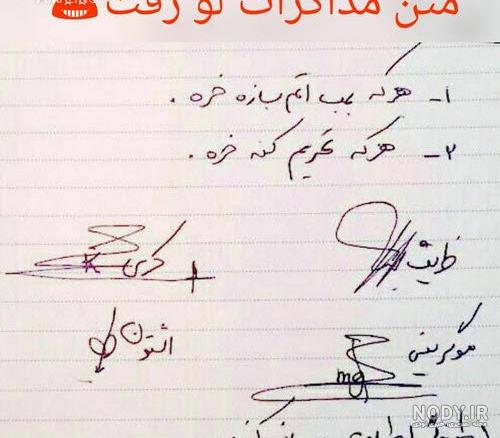 متن مذاکرات لو رفت☎
۱- هرکه بمب اتم بسازه خره .
۲- هرکه تحریم کنه خره .
ظریف
کری
اشتون
موگرینی
mg
NODY.IR